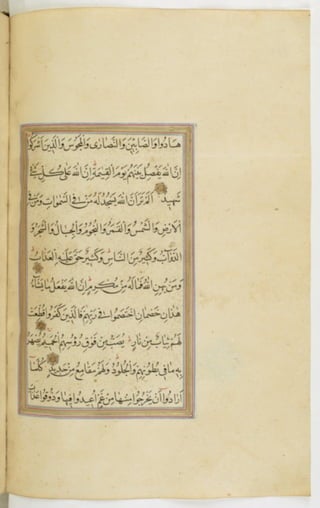 هَادُوا وَالصَّابِئِينَ وَالنَّصَارَى وَالْمَجُوسَ وَالَّذِينَ أَشْرَكُوا
إِنَّ اللَّهَ يَفْصِلُ بَيْنَهُمْ يَوْمَ الْقِيَمَةِ إِنَّ اللَّهَ عَلَى كُلِّ شَيْءٍ
شَهِيدٌ أَلَمْ تَرَ أَنَّ اللَّهَ يَسْجُدُ لَهُ مَنْ فِي السَّمَوَاتِ وَمَنْ فِي
الْأَرْضِ وَالشَّمْسُ وَالْقَمَرُ وَالنُّجُومُ وَالْجِبَالُ وَالشَّجَرُ وَ
الدَّوَآبُّ وَكَثِيرٌ مِنَ النَّاسِ وَكَثِيرٌ حَقَّ عَلَيْهِ الْعَذَابُ
وَمَنْ يُهِنِ اللَّهُ فَمَا لَهُ مِنْ مُكْرِمٍ إِنَّ اللَّهَ يَفْعَلُ مَا يَشَاءُ
هَذَانِ خَصْمَانِ اخْتَصَمُوا فِي رَبِّهِمْ فَالَّذِينَ كَفَرُوا قُطِّعَتْ
لَهُمْ ثِيَابٌ مِنْ نَارٍ يُصَبُّ مِنْ فَوْقِ رُءُوسِهِمُ الْحَمِيمُ يُصْهَرُ
بِهِ مَا فِي بُطُونِهِمْ وَالْجُلُودُ وَلَهُمْ مَقَامِعُ مِنْ حَدِيدٍ كُلَّمَا
أَرَادُوا أَنْ يَخْرُجُوا مِنْهَا مِنْ غَمٍّ أُعِيدُوا فِيهَا وَذُوقُوا عَذَابَ